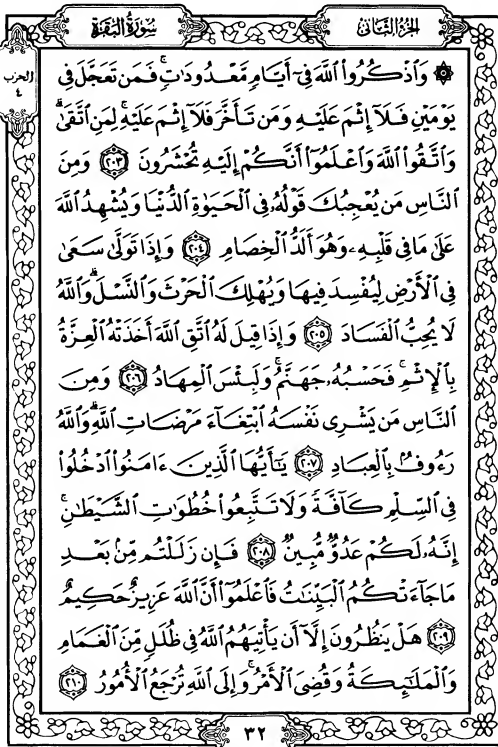 سُورَةُ البَقَرَةِ
الجُزْءُ الثَّانِى
الحزب
٤
۞ وَاذْكُرُوا اللَّهَ فِى أَيَّامٍ مَعْدُودَاتٍ ۚ فَمَن تَعَجَّلَ فِى
يَوْمَيْنِ فَلَا إِثْمَ عَلَيْهِ وَمَن تَأَخَّرَ فَلَا إِثْمَ عَلَيْهِ ۚ لِمَنِ اتَّقَىٰ ۗ
وَاتَّقُوا اللَّهَ وَاعْلَمُوا أَنَّكُمْ إِلَيْهِ تُحْشَرُونَ ﴿٢٠٣﴾ وَمِنَ
النَّاسِ مَن يُعْجِبُكَ قَوْلُهُ فِى الْحَيَوٰةِ الدُّنْيَا وَيُشْهِدُ اللَّهَ
عَلَىٰ مَا فِى قَلْبِهِ وَهُوَ أَلَدُّ الْخِصَامِ ﴿٢٠٤﴾ وَإِذَا تَوَلَّىٰ سَعَىٰ
فِى الْأَرْضِ لِيُفْسِدَ فِيهَا وَيُهْلِكَ الْحَرْثَ وَالنَّسْلَ ۗ وَاللَّهُ
لَا يُحِبُّ الْفَسَادَ ﴿٢٠٥﴾ وَإِذَا قِيلَ لَهُ اتَّقِ اللَّهَ أَخَذَتْهُ الْعِزَّةُ
بِالْإِثْمِ ۚ فَحَسْبُهُ جَهَنَّمُ ۚ وَلَبِئْسَ الْمِهَادُ ﴿٢٠٦﴾ وَمِنَ
النَّاسِ مَن يَشْرِى نَفْسَهُ ابْتِغَاءَ مَرْضَاتِ اللَّهِ ۗ وَاللَّهُ
رَءُوفٌ بِالْعِبَادِ ﴿٢٠٧﴾ يَٰأَيُّهَا الَّذِينَ ءَامَنُوا ادْخُلُوا
فِى السِّلْمِ كَافَّةً وَلَا تَتَّبِعُوا خُطُوَٰتِ الشَّيْطَٰنِ ۚ
إِنَّهُ لَكُمْ عَدُوٌّ مُّبِينٌ ﴿٢٠٨﴾ فَإِن زَلَلْتُم مِّن بَعْدِ
مَا جَاءَتْكُمُ الْبَيِّنَٰتُ فَاعْلَمُوا أَنَّ اللَّهَ عَزِيزٌ حَكِيمٌ
﴿٢٠٩﴾ هَلْ يَنظُرُونَ إِلَّا أَن يَأْتِيَهُمُ اللَّهُ فِى ظُلَلٍ مِّنَ الْغَمَامِ
وَالْمَلَٰئِكَةُ وَقُضِىَ الْأَمْرُ ۚ وَإِلَى اللَّهِ تُرْجَعُ الْأُمُورُ ﴿٢١٠﴾
٣٢